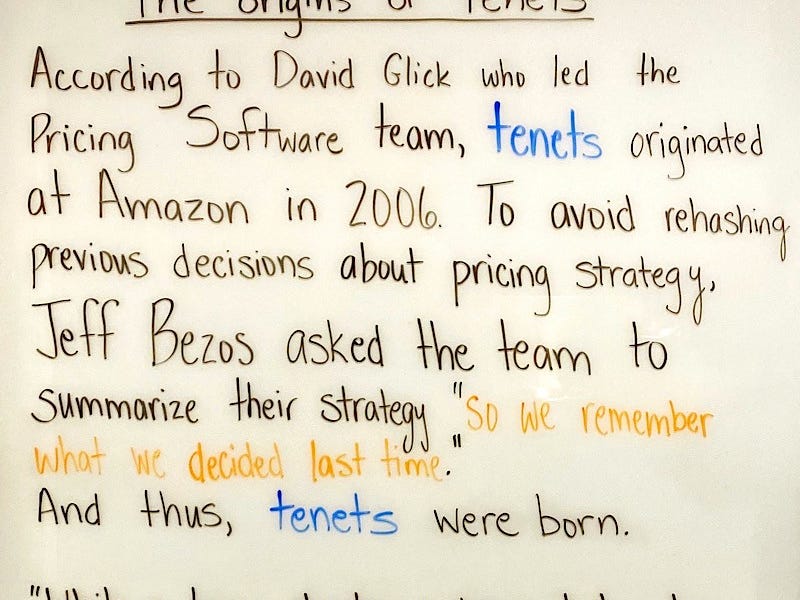 The Origins of Tenets
According to David Glick who led the
Pricing Software team, tenets originated
at Amazon in 2006. To avoid rehashing
previous decisions about pricing strategy,
Jeff Bezos asked the team to
summarize their strategy "So we remember
what we decided last time."
And thus, tenets were born.